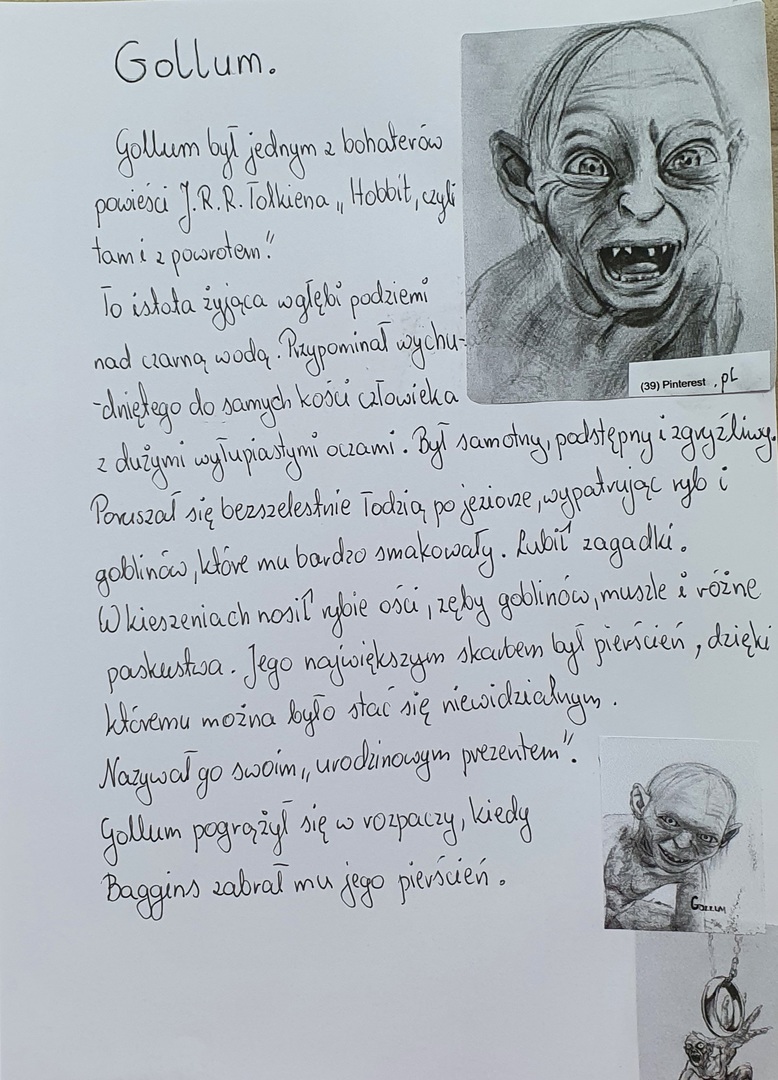 Gollum.
Gollum był jednym z bohaterów
powieści J.R.R. Tolkiena „Hobbit, czyli
tam i z powrotem."
To istota żyjąca w głębi podziemi
nad czarną wodą. Przypominał wychu-
-dniętego do samych kości człowieka
z dużymi wyłupiastymi oczami. Był samotny, podstępny i zgryźliwy.
Poruszał się bezszelestnie łodzią po jeziorze, wypatrując ryb i
goblinów, które mu bardzo smakowały. Lubił zagadki.
W kieszeniach nosił rybie ości, zęby goblinów, muszle i różne
paskustwa. Jego największym skarbem był pierścień, dzięki
któremu można było stać się niewidzialnym.
Nazywał go swoim „urodzinowym prezentem".
Gollum pogrążył się w rozpaczy, kiedy
Baggins zabrał mu jego pierścień.
(39) Pinterest .pl
Gollum